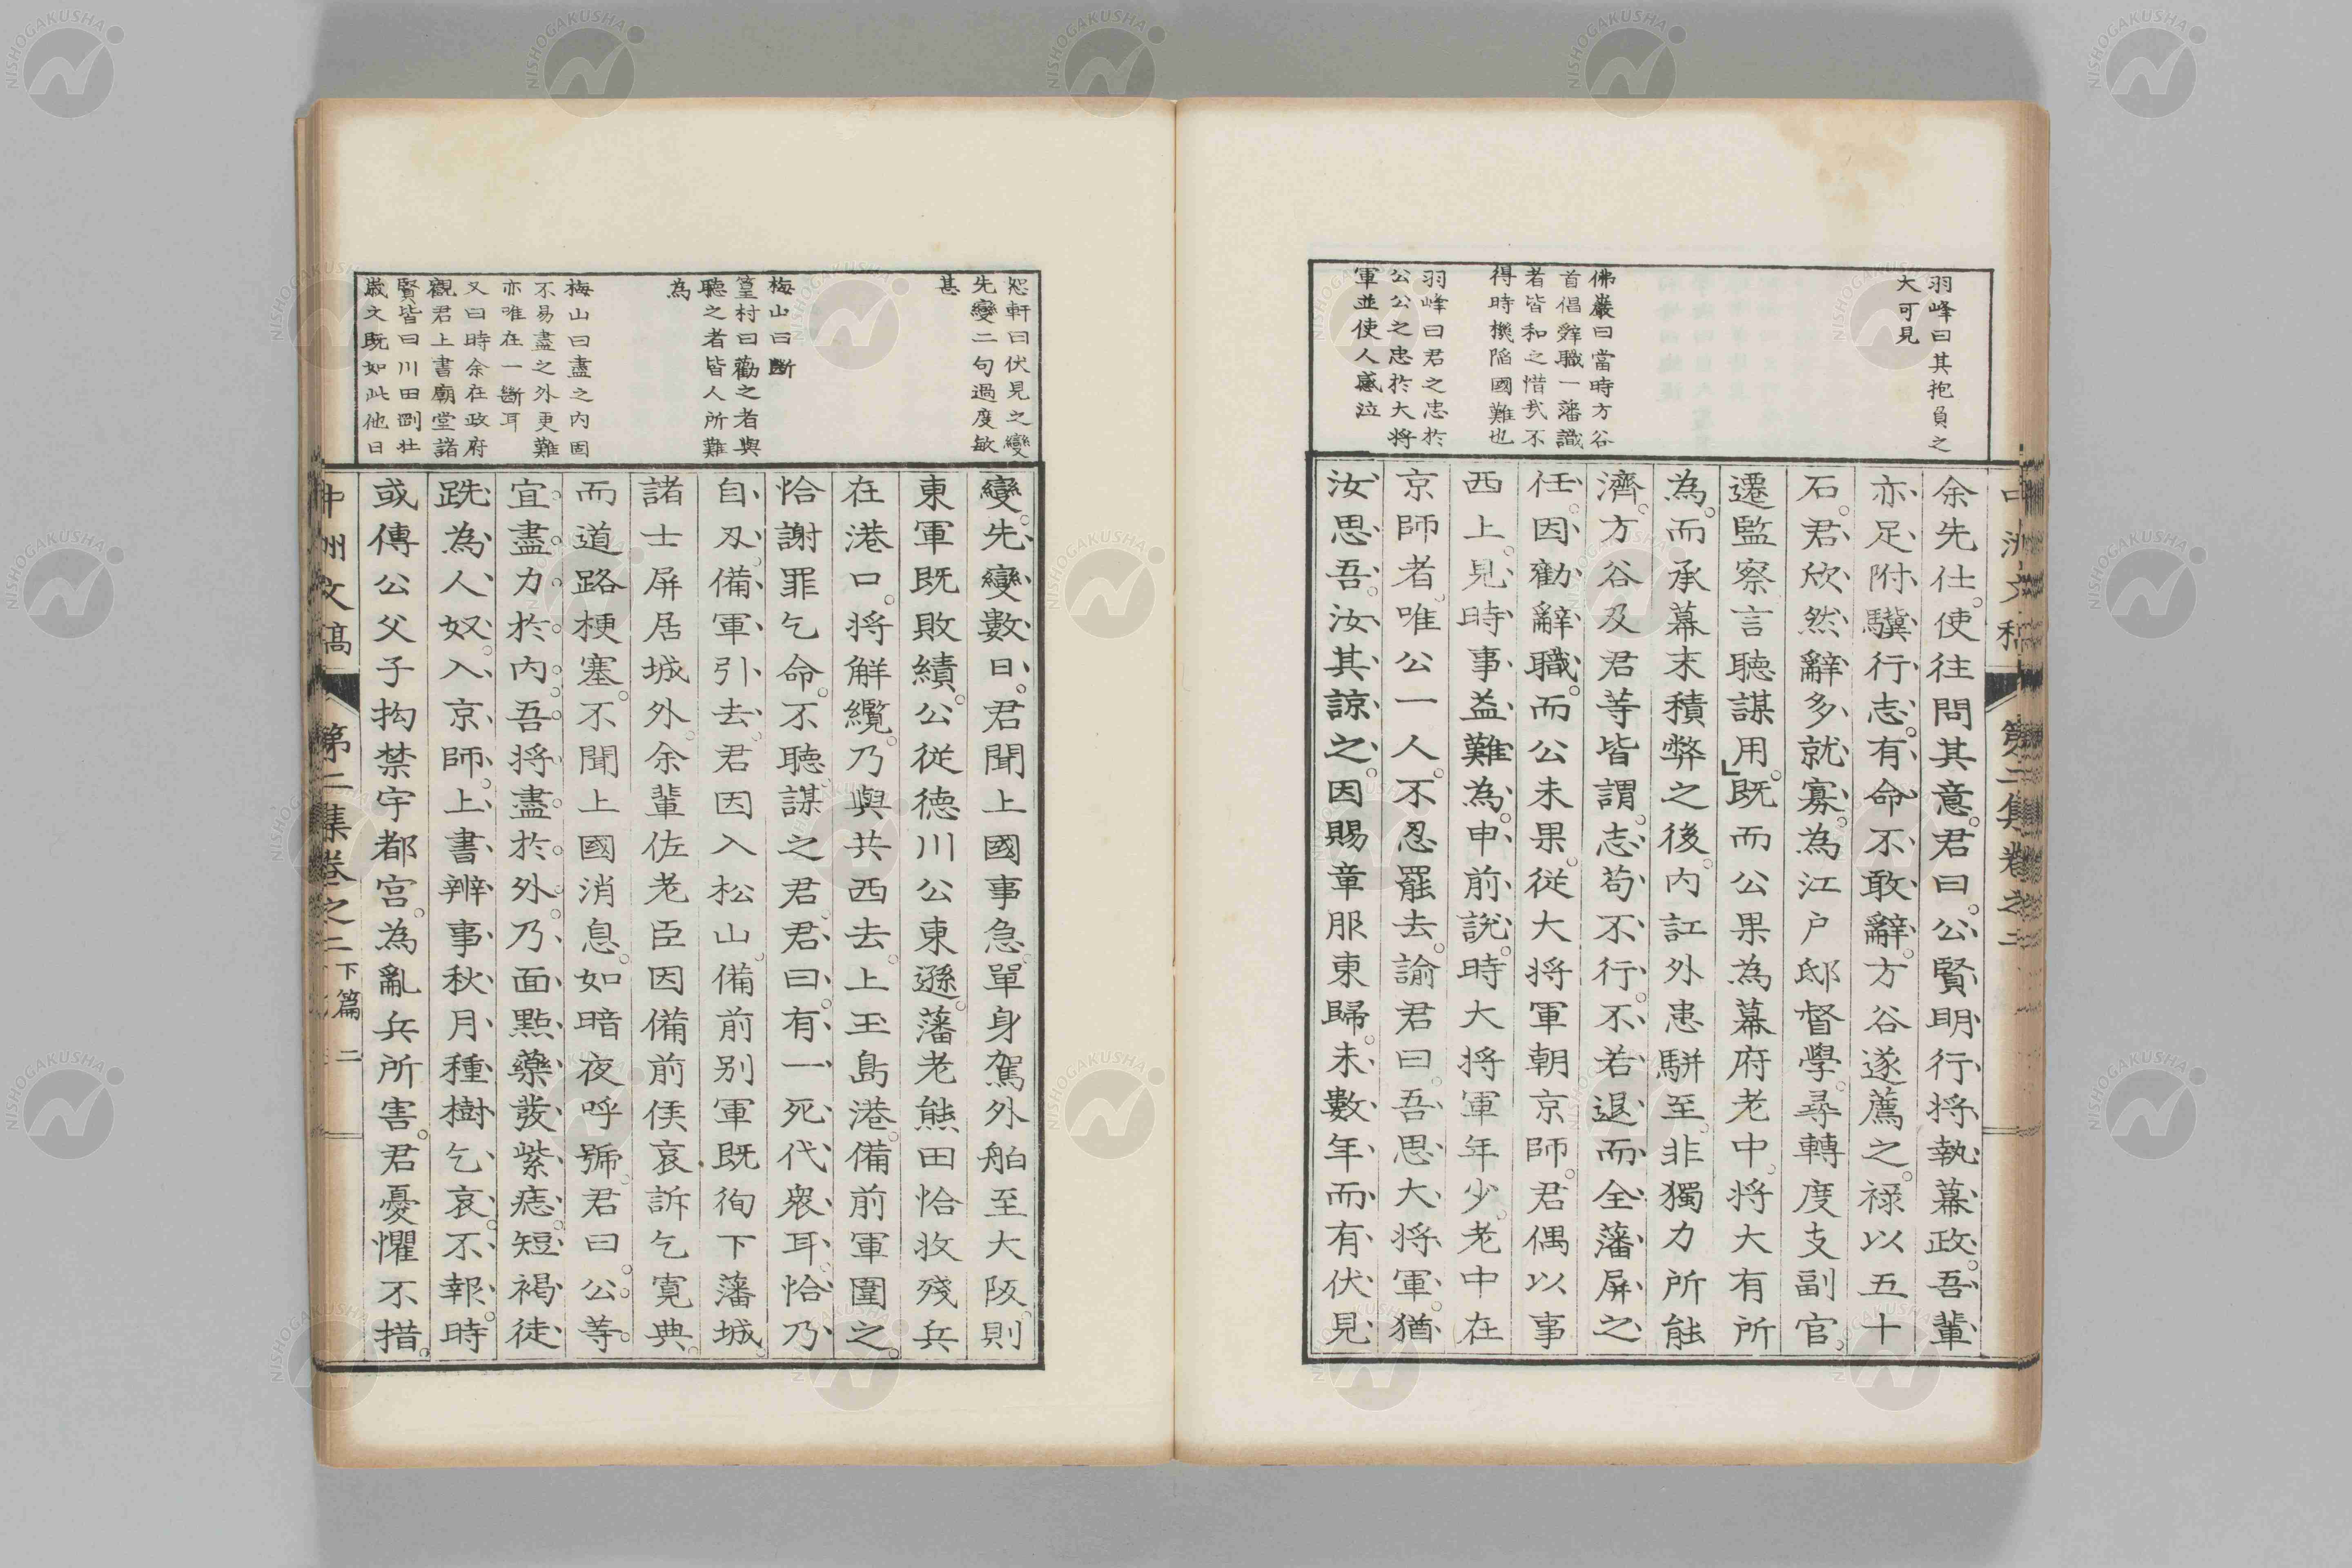 羽峰曰其抱負之
大可見
佛巖曰當時方谷
首倡辭職一藩識
者皆和之惜哉不
得時機陷國難也
羽峰曰君之忠於
公公之忠於大將
軍並使人感泣
余先仕。使往問其意。君曰。公賢明。行將執幕政。吾輩
亦足附驥行志。有命不敢辭。方谷遂薦之。祿以五十
石。君欣然辭多就寡。為江戶邸督學。尋轉度支副官。
遷監察。言聽謀用。既而公果為幕府老中。將大有所
為。而承幕末積弊之後。內訌外患駢至。非獨力所能
濟。方谷及君等皆謂。志苟不行。不若退而全藩屏之
任。因勸辭職。而公未果。從大將軍朝京師。君偶以事
西上。見時事益難為。申前說。時大將軍年少。老中在
京師者。唯公一人。不忍罷去。諭君曰。吾思大將軍。猶
汝思吾。汝其諒之。因賜章服東歸。未數年而有伏見
中洲文稿 第二集卷之二
恕軒曰伏見之變
先變二句過度敏
甚
梅山曰斷
篁村曰勸之者與
聽之者皆人所難
為
梅山曰盡之內固
不易盡之外更難
亦唯在一斷耳
又曰時余在政府
觀君上書廟堂諸
賢皆曰川田剛壯
歲文既如此他日
變。先變數日。君聞上國事急。單身駕外舶至大阪。則
東軍既敗績。公從德川公東遜。藩老熊田恰收殘兵
在港口。將解纜。乃與共西去。上玉島港。備前軍圍之。
恰謝罪乞命。不聽。謀之君。君曰。有一死代衆耳。恰乃
自刃。備軍引去。君因入松山。備前別軍既徇下藩城。
諸士屏居城外。余輩佐老臣。因備前侯哀訴乞寬典。
而道路梗塞。不聞上國消息。如暗夜呼號。君曰。公等
宜盡力於內。吾將盡於外。乃面點藥發紫痣。短褐徒
跣為人奴。入京師。上書辨事。秋月種樹乞哀。不報。時
或傳公父子拘禁宇都宮。為亂兵所害。君憂懼不措。
中洲文稿 第二集卷之二 下篇 二